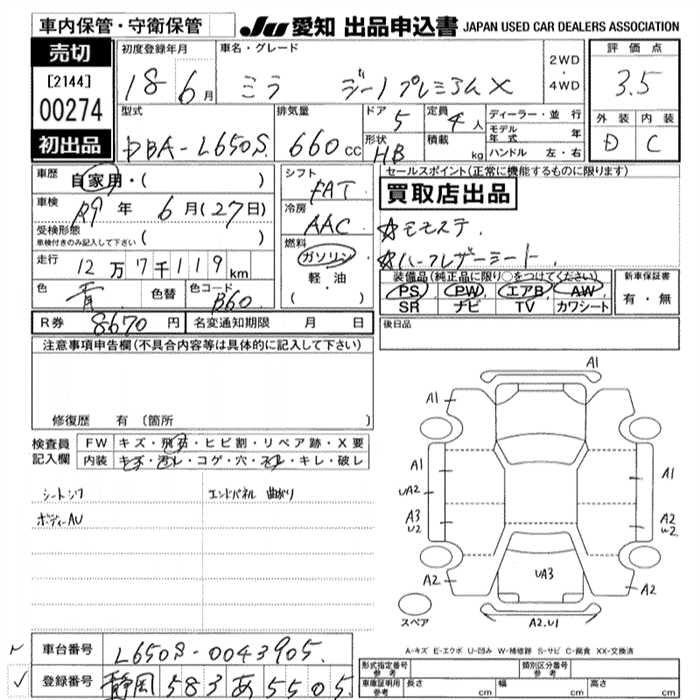 車内保管・守衛保管
JU 愛知 出品申込書 JAPAN USED CAR DEALERS ASSOCIATION
売切
[2144]
00274
初出品
初度登録年月
18 6月
車名・グレード
ミラ ジーノプレミアムX
2WD
・
4WD
評価点
3.5
外装 内装
D C
型式
DBA-L650S
排気量
660cc
ドア
5
定員
4人
形状
HB
積載
kg
ディーラー・並行
モデル年式 年
ハンドル 左・右
車歴
自家用・( )
車検
R9年 6月(27日)
受検形態
車検付きのみ記入して下さい ( )
走行
12万7千119km
色
青
色替
色コード
B60
シフト
FAT
冷房
AAC
燃料
ガソリン
軽・油
( )
セールスポイント(正常に機能するものに限ります)
買取店出品
☆モモステ
☆ハーフレザーシート
装備品(純正品に限り○をつけてください)
PS PW エアB AW
SR ナビ TV カワシート
新車保証書
有・無
R券 8670円
名変通知期限 月 日
後日品
注意事項申告欄(不具合内容等は具体的に記入して下さい)
修復歴 有 〔箇所 〕
検査員記入欄
FW キズ・飛石・ヒビ割・リペア跡・X要
内装 キズ・汚レ・コゲ・穴・スレ・キレ・破レ
シートシワ
エンドパネル 曲がり
ボディーAU
A1
A1
A1
A1
UA2
A3
U2
A2
W2
A2
A2
UA3
A2.U1
スペア
A-キズ E-エクボ U-凹み W-補修跡 S-サビ C-腐食 XX-交換済
車台番号
L650S-0043905
登録番号
静岡 583 あ 5505
形式指定番号
参考
類別区分番号
参考
車庫証明用
参考
長さ cm
幅 cm
高さ cm